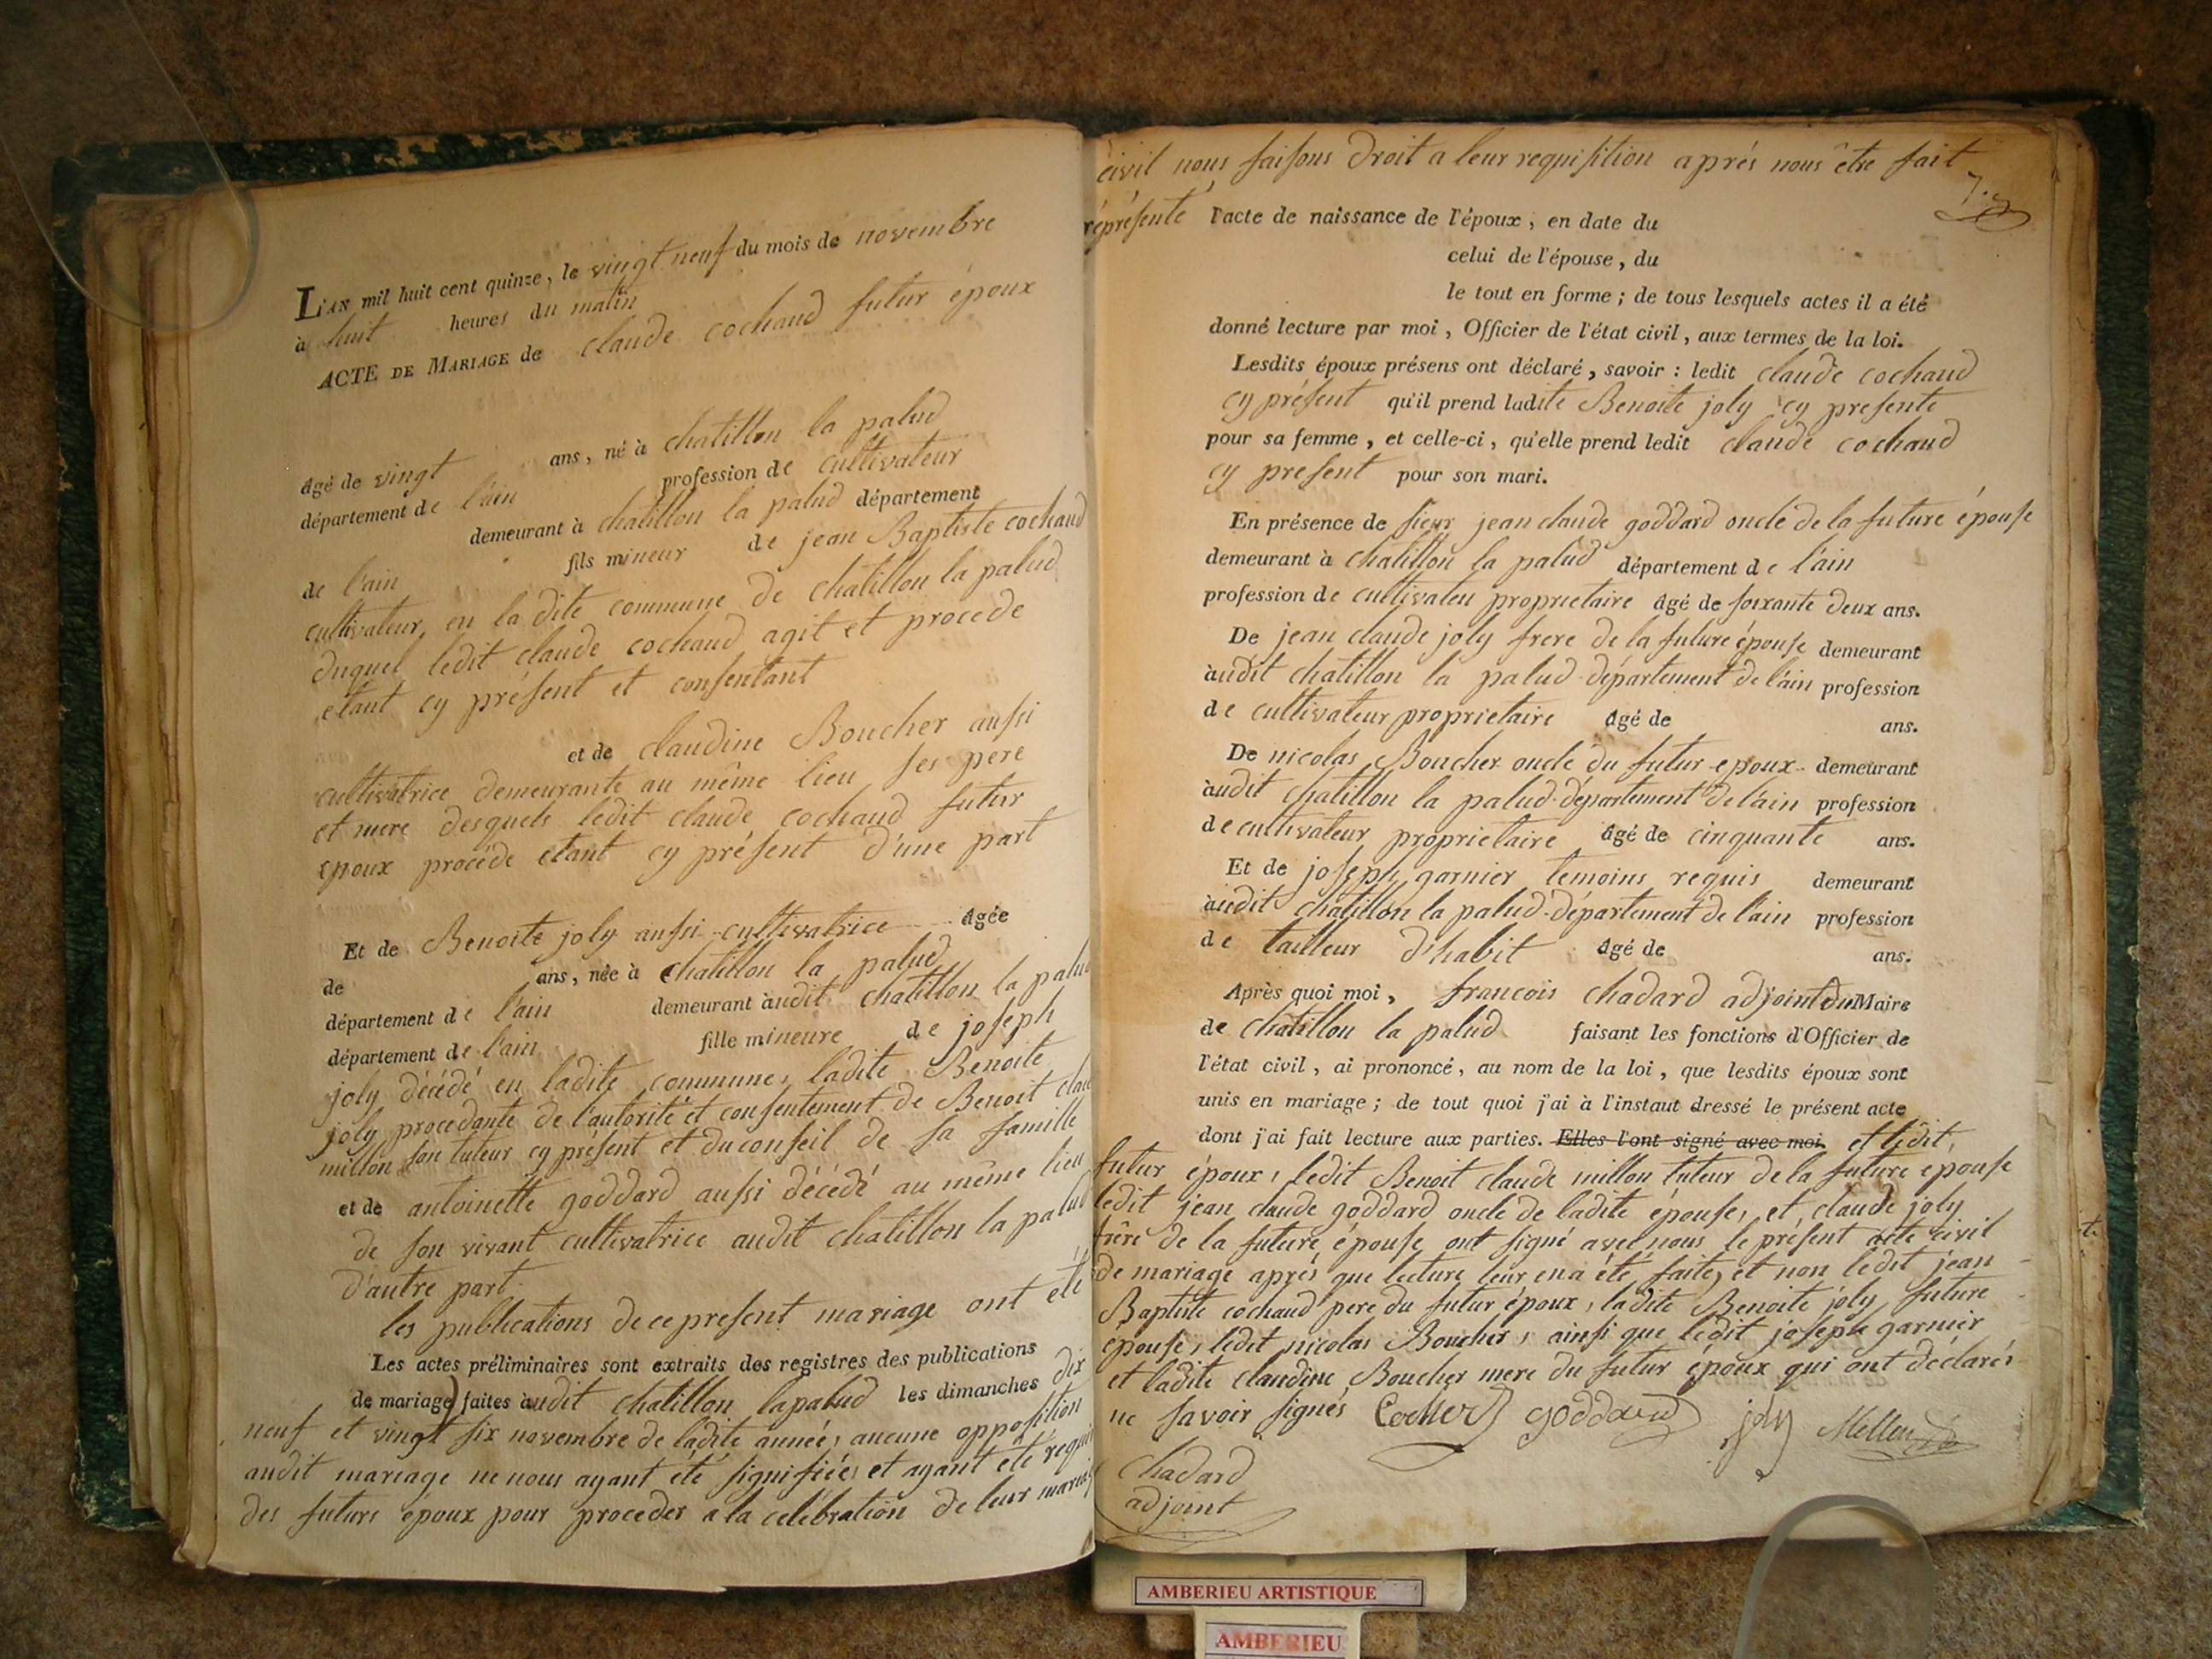 L'AN mil huit cent quinze, le vingt neuf du mois de novembre
à huit heures du matin
ACTE DE MARIAGE de claude cochaud futur époux
âgé de vingt ans, né à chatillon la palud
département de l'ain profession de cultivateur
demeurant à chatillon la palud département
de l'ain fils mineur de jean Baptiste cochaud
cultivateur, en la dite commune de chatillon la palud
duquel ledit claude cochaud agit et procede
etant cy présent et consentant
et de claudine Boucher aussi
cultivatrice demeurante au même lieu ses pere
et mere desquels ledit claude cochaud futur
époux procéde etant cy présent d'une part
Et de Benoite joly aussi cultivatrice âgée
de ans, née à chatillon la palud
département de l'ain demeurant audit chatillon la palud
département de l'ain fille mineure de joseph
joly décédé en ladite commune, ladite Benoite
joly procedante de l'autorité et consentement de Benoit claude
millon son tuteur cy présent et du conseil de sa famille
et de antoinette goddard aussi décédé au même lieu
de son vivant cultivatrice audit chatillon la palud
d'autre part
les publications de ce present mariage ont été
Les actes préliminaires sont extraits des registres des publications
de mariage) faites audit chatillon lapalud les dimanches dix
neuf et vingt six novembre de ladite année, aucune opposition
audit mariage ne nous ayant été signifiée, et ayant été requis
des futurs epoux pour proceder a la celébration de leur mariage
civil nous faisons droit a leur requisition aprés nous être fait
réprésenté l'acte de naissance de l'époux, en date du
celui de l'épouse, du
le tout en forme; de tous lesquels actes il a été
donné lecture par moi, Officier de l'état civil, aux termes de la loi.
Lesdits époux présens ont déclaré, savoir: ledit claude cochaud
cy présent qu'il prend ladite Benoite joly cy presente
pour sa femme, et celle-ci, qu'elle prend ledit claude cochaud
cy present pour son mari.
En présence de sieur jean claude goddard oncle de la future épouse
demeurant à chatillon la palud département de l'ain
profession de cultivateu proprietaire âgé de soixante deux ans.
De jean claude joly frere de la future épouse demeurant
audit chatillon la palud département de l'ain profession
de cultivateur proprietaire âgé de ans.
De nicolas Boucher oncle du futur epoux demeurant
audit chatillon la palud département de l'ain profession
de cultivateur proprietaire âgé de cinquante ans.
Et de joseph garnier temoins requis demeurant
audit chatillon la palud département de l'ain profession
de tailleur d'habit âgé de ans.
Après quoi moi, francois chadard adjoint du Maire
de chatillon la palud faisant les fonctions d'Officier de
l'état civil, ai prononcé, au nom de la loi, que lesdits époux sont
unis en mariage; de tout quoi j'ai à l'instaut dressé le présent acte
dont j'ai fait lecture aux parties. Elles l'ont signé avec moi. et ledit
futur époux, ledit Benoit claude millon tuteur de la future épouse
ledit jean claude goddard oncle de ladite épouse, et claude joly
frère de la future épouse ont signé avec nous le présent acte civil
de mariage aprés que lecture leur en a été faite, et non ledit jean
Baptiste cochaud pere du futur époux, ladite Benoite joly future
épouse, ledit nicolas Boucher, ainsi que ledit joseph garnier
et ladite claudine Boucher mere du futur époux qui ont déclarés
ne savoir signés goddard joly
chadard
adjoint
AMBERIEU ARTISTIQUE
AMBERIEU